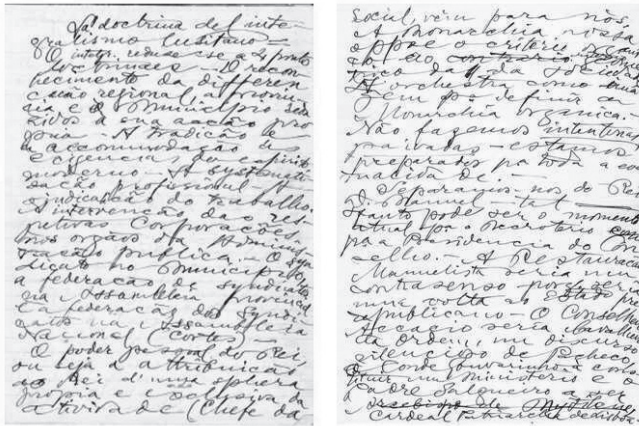 La doctrina del inte-
gralismo lusitano =
O integr. reduz-se a 4 pontos
doctrinaes - O recon-
hecimento da differen
ciação regional, a Provin
cia e o Municipio
zidos a sua acção pro
pria - A tradição
accommodação
exigencias do espirito
moderno - A systemati
sação profissional - A
do trabalho
A intervenção das res
pectivas Corporações
nos orgãos da Adminis
tração publica. - O Syn
dicato no Municipio,
a federação de Syndicatos
na Assembleia provincial
e a federação dos Syndi
catos na Assembleia
Nacional (Cortes) -
O poder pessoal do Rei,
ou seja a attribuição
ao Rei d'uma esphera
propria e exclusiva da
actividade (Chefe da
social, vem para nós.
A monarchia nossa
oppõe o criterio
ao contrario
da Socie
A orchestra como
bem pode definir a
Monarchia organica.
Não fazemos intentona
- estamos
preparados pa toda a con
tinuidade. -
Separamos-nos do Rei
D. Manuel - tal
tanto pode ser o momento
actual pa o Secretario como
pa a Presidencia do Con
selho. - A Restauração
Manuelista seria um
contrasenso porq seria
uma volta ao Estado pre
republicano - O Conselheiro
Accacio seria Cavalheiro
da ordem, um discurso
silencioso de Pacheco,
o Conde Gouvarinho a cons
tituir um ministerio e o
Padre Salgueiro a ser
Arcebispo de Mytilene
Cardeal Patriarcha de Lisboa